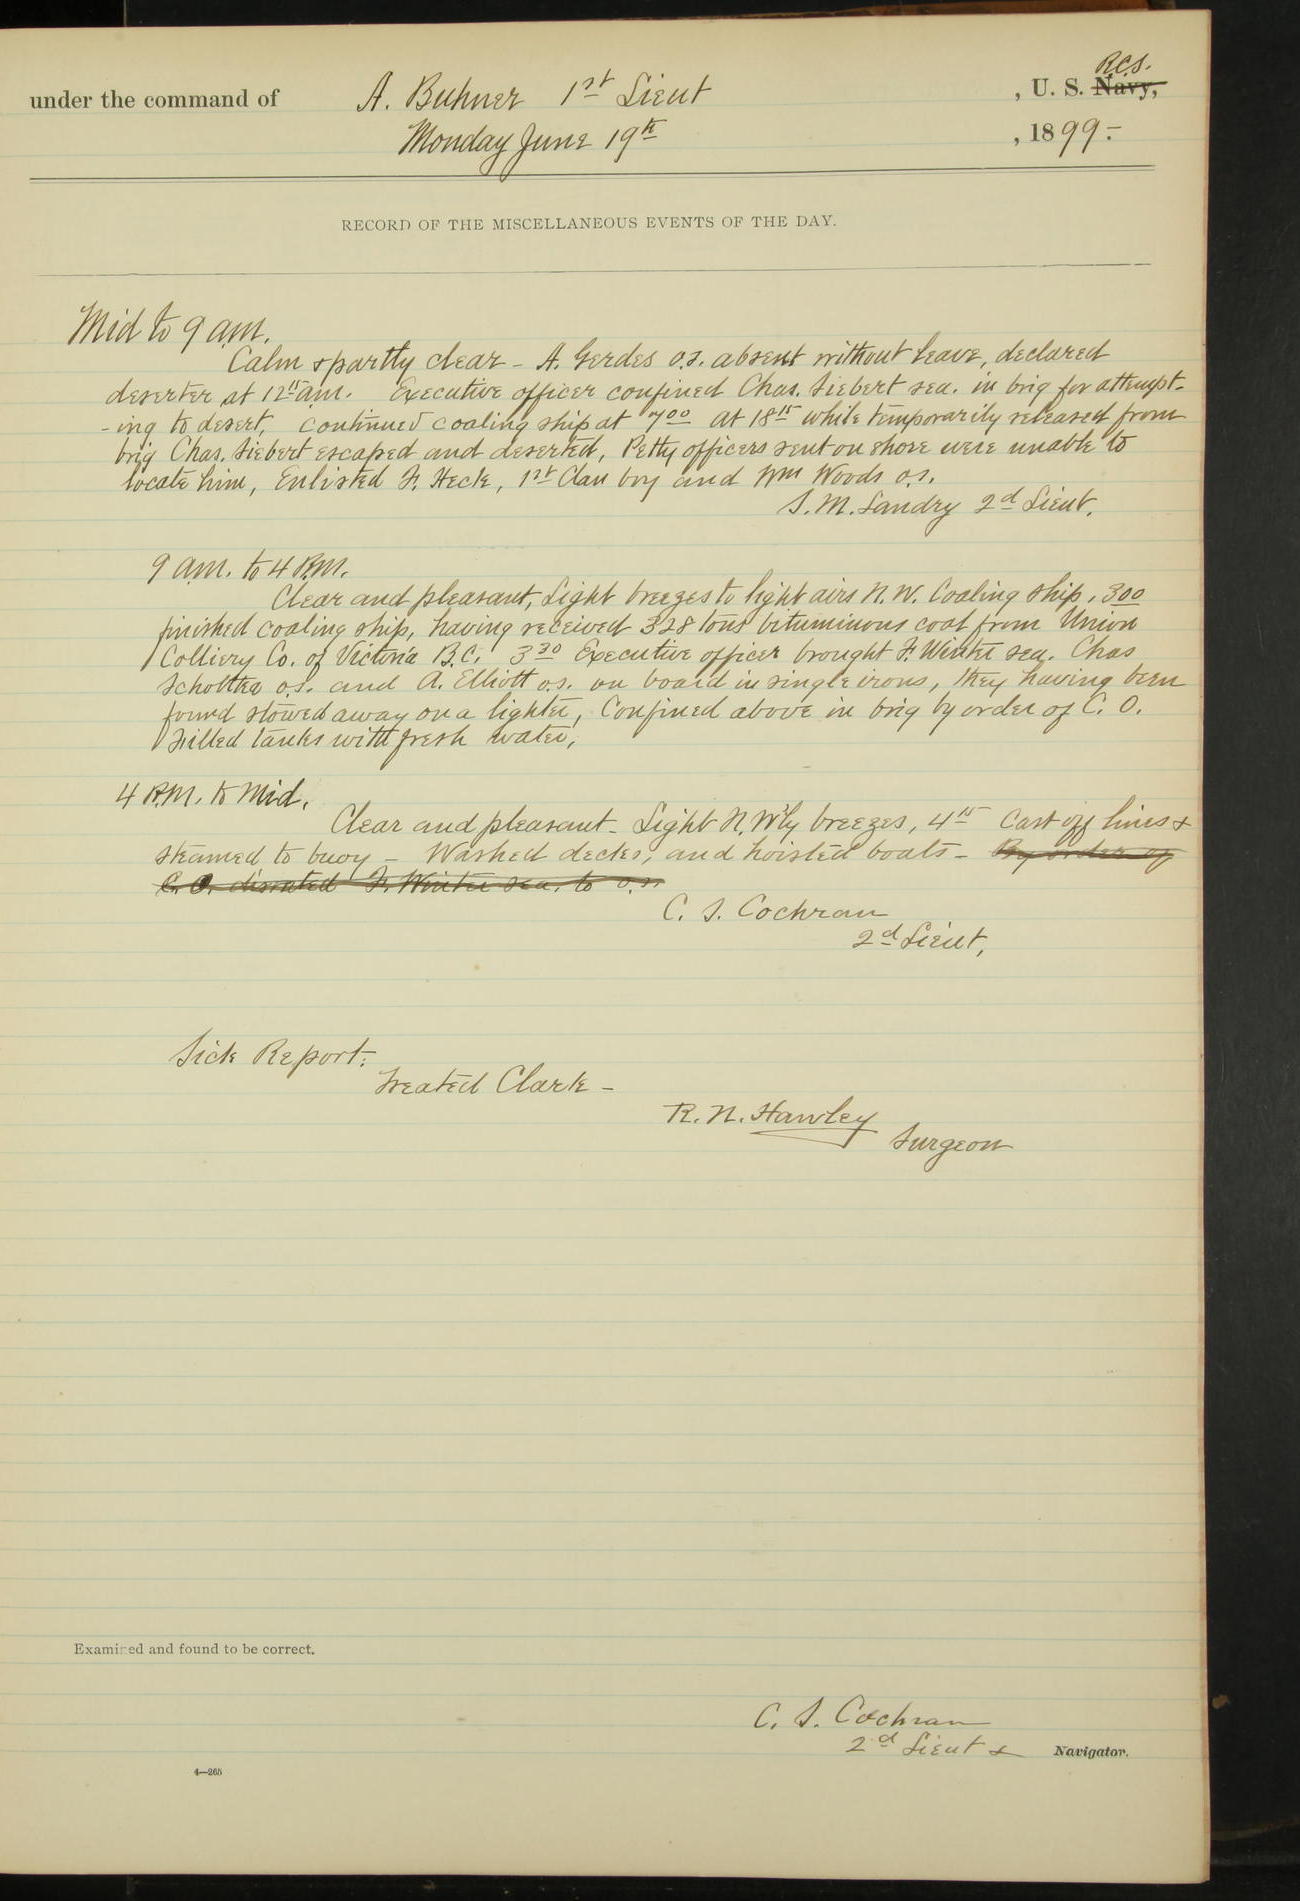 R.C.S.
under the command of A. Buhner 1st Lieut , U. S. Navy,
Monday June 19th , 1899-
RECORD OF THE MISCELLANEOUS EVENTS OF THE DAY.
Mid to 9 a.m.
Calm & partly clear - A. Gerdes o.s. absent without leave, declared
deserter at 12 a.m. Executive officer confined Chas. Siebert sea. in brig for attempt-
-ing to desert, continued coaling ship at 7 00 at 18 15 while temporarily released from
brig Chas. Siebert escaped and deserted, Petty officers sent on shore were unable to
locate him, Enlisted F. Heck, 1st Class boy and Wm Woods o.s.
S. M. Landry 2d Lieut.
9 a.m. to 4 P.M.
Clear and pleasant, Light breezes to light airs N.W. Coaling ship, 300
finished coaling ship, having received 328 tons bituminous coal from Union
Colliery Co. of Victoria B.C. 3 30 Executive officer brought F. Winter sea. Chas
o.s. and A. Elliott o.s. on board in single irons, they having been
found stowed away on a lighter, Confined above in brig by order of C. O.
Filled tanks with fresh water,
4 P.M. to Mid.
Clear and pleasant - Light N.W'ly breezes, 4 15 Cast off lines &
steamed to buoy - Washed decks, and hoisted boats - By order of
C. O. disrated F. Winter sea. to o.s.
C. S. Cochran
2d Lieut,
Sick Report:
Treated Clark -
R. N. Hawley
Surgeon
Examined and found to be correct.
C. S. Cochran
2d Lieut & Navigator.
4—265